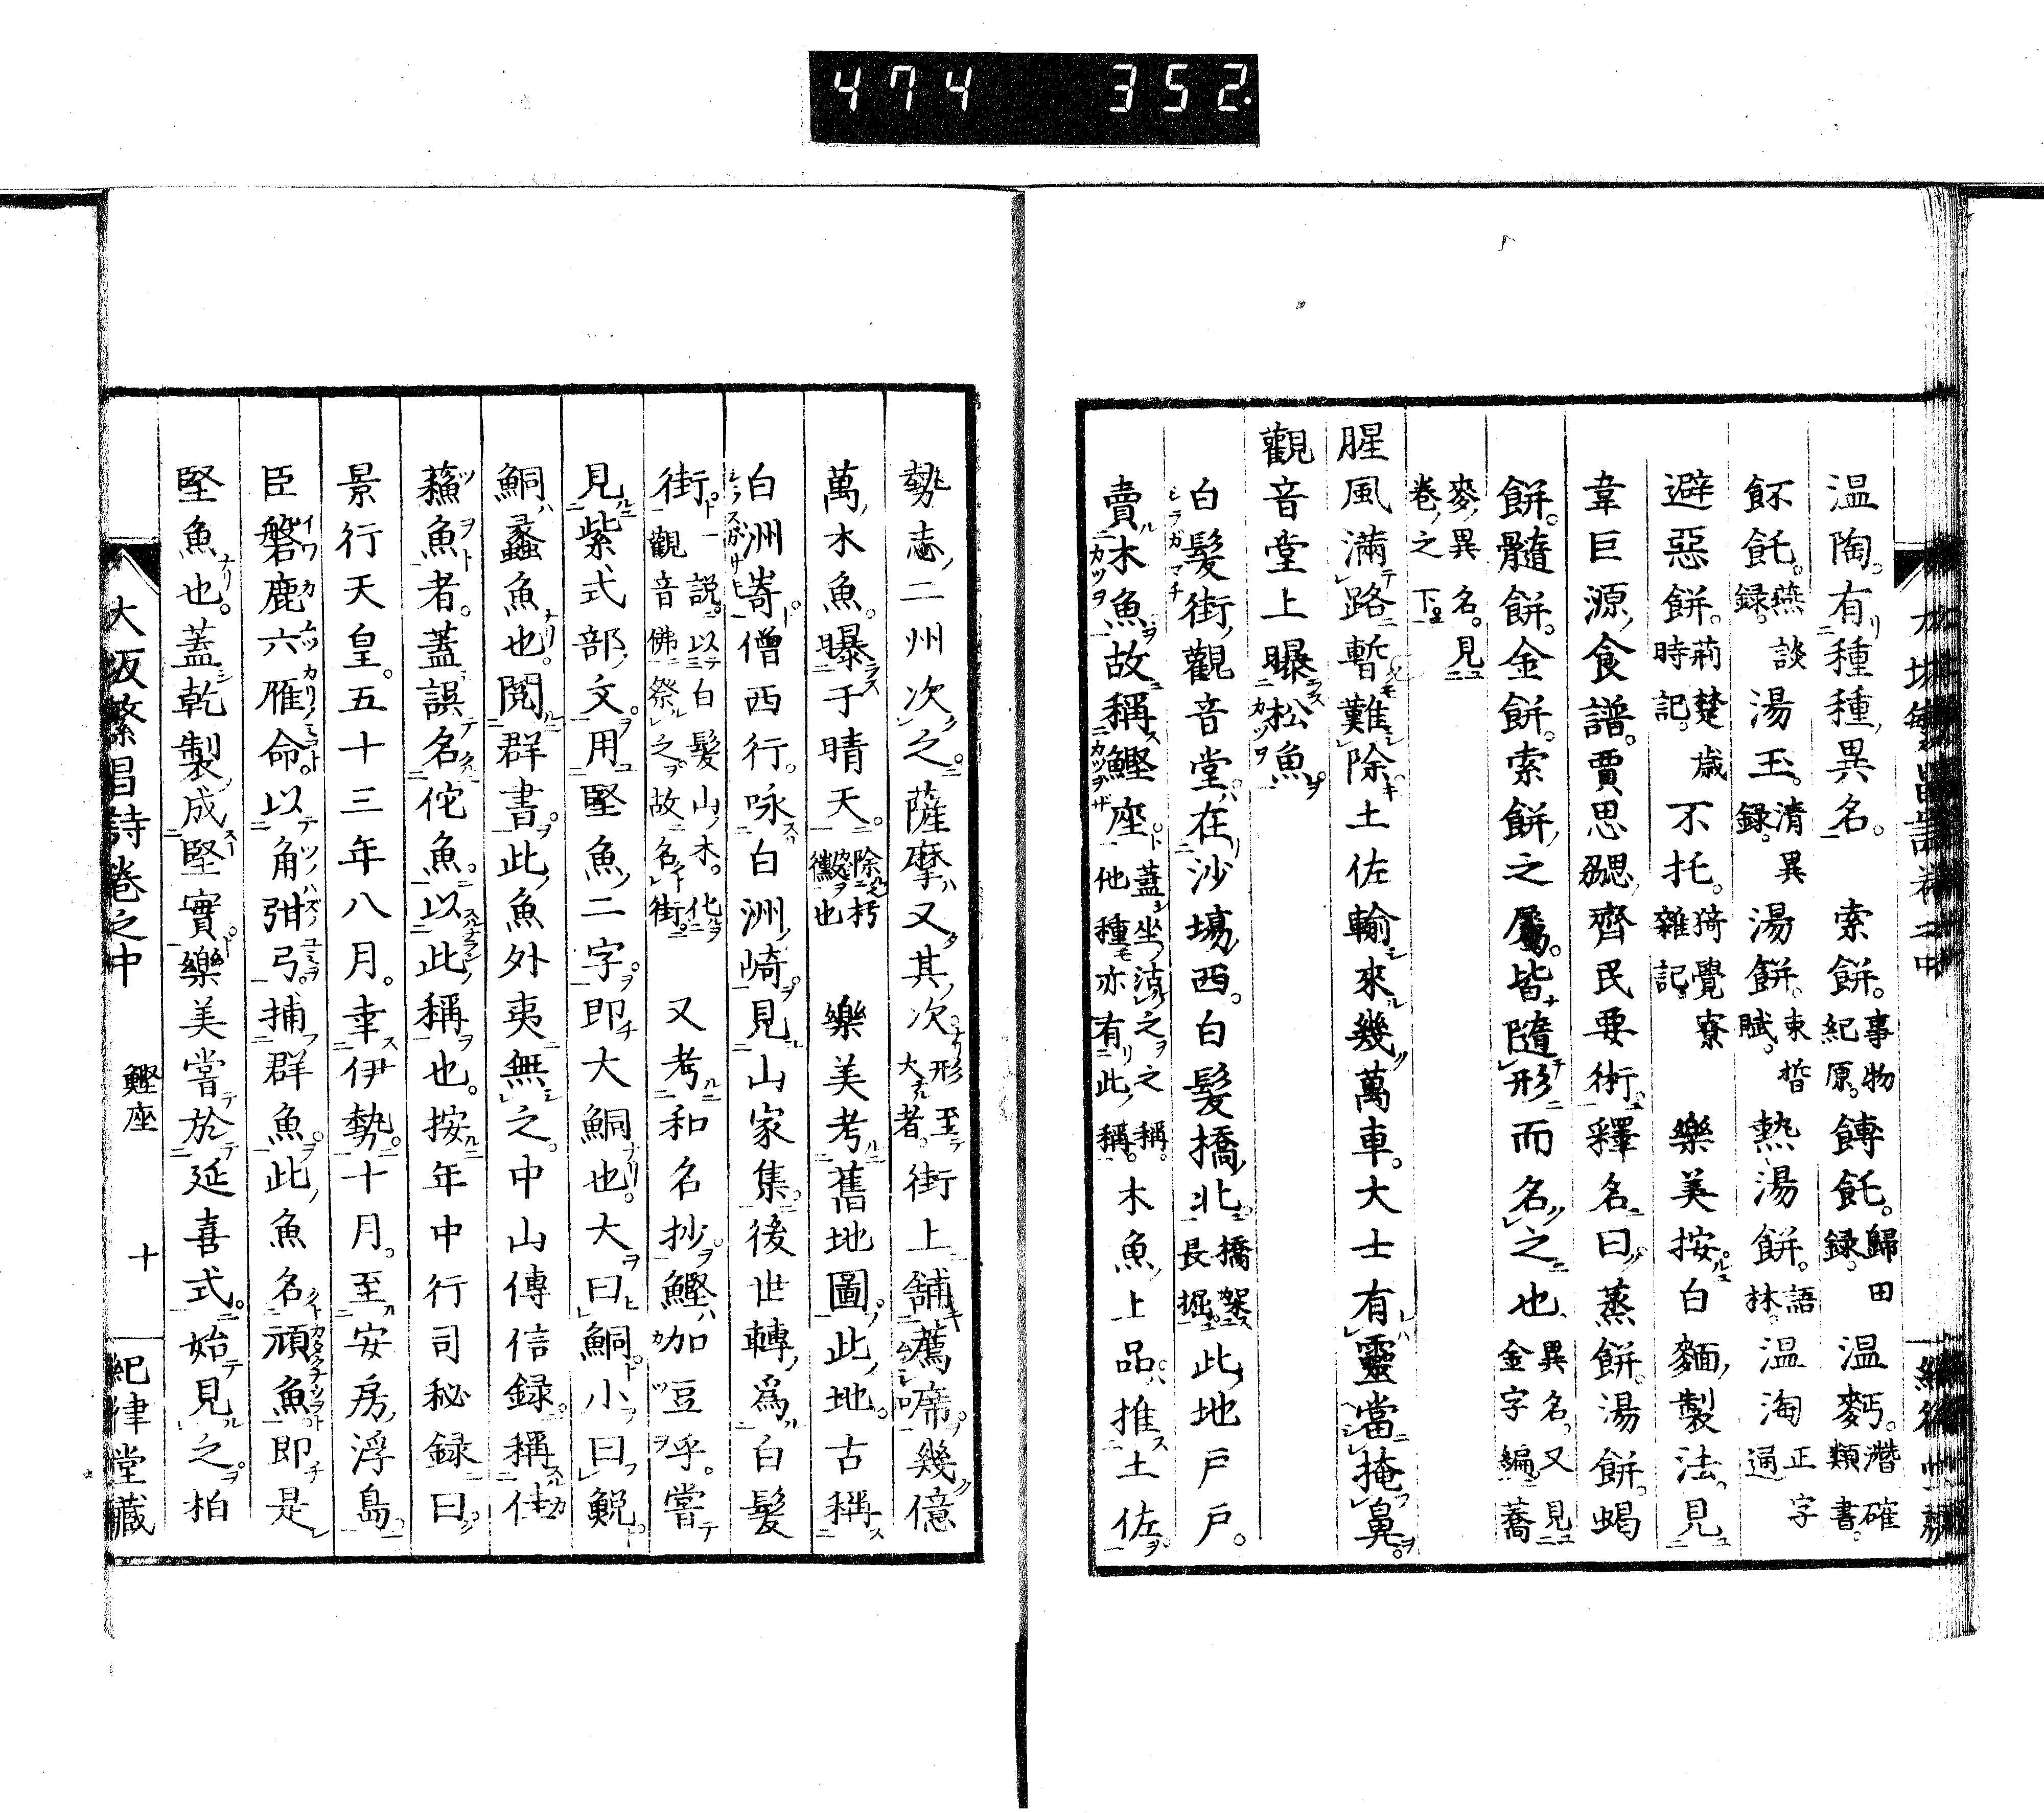 474 352.
温陶。有種種異名。 索餅。事物紀原。餺飥。歸田錄。温麪。潛確類書。
飥飥。燕談錄。湯玉。清異錄。湯餅。束晳賦。熱湯餅。語林。温淘正字通
避惡餅。荊楚歲時記。不托。猗覺寮雜記。 樂美按。白麵製法。見
韋巨源食譜。賈思勰齊民要術。釋名曰。蒸餅。湯餅。蝎
餅。髓餅。金餅。索餅之屬。皆隨形而名之也。異名又見金字編。蕎
麥異名。見卷之下
腥風滿路暫難除土佐輸來幾萬車。大士有靈當掩鼻。
觀音堂上曝松魚
白髮街觀音堂。在沙場西。白髮橋北。橋架長堀。此地戶戶。
賣木魚。故稱鰹座。蓋坐沽之之稱。他種亦有此稱。木魚上品。推土佐。
勢志二州次之。薩摩又其次。形至大者。街上舖薦席。幾億
萬木魚。曝于晴天。除朽黴也 樂美考舊地圖。此地。古稱
白洲嵜。僧西行。咏白洲崎。見山家集。後世轉爲白髮
街。一說。以白髮山木。化觀音佛祭之。故名街。 又考和名抄。鰹加豆乎。嘗
見紫式部文。用堅魚二字。即大鮦也。大曰鮦。小曰鮵。
鮦蠡魚也。閱群書。此魚外夷無之。中山傳信錄。稱佳
蘓魚者。蓋誤名佗魚。以此稱也。按年中行司秘録曰。
景行天皇。五十三年八月。幸伊勢。十月。至安房浮島。
臣磐鹿六雁命。以角弭弓。捕群魚。此魚名頑魚。即是
堅魚也。蓋乾製。成堅實。樂美嘗於延喜式。始見之。柏
大坂繁昌詩卷之中 鰹座 十 紀律堂藏